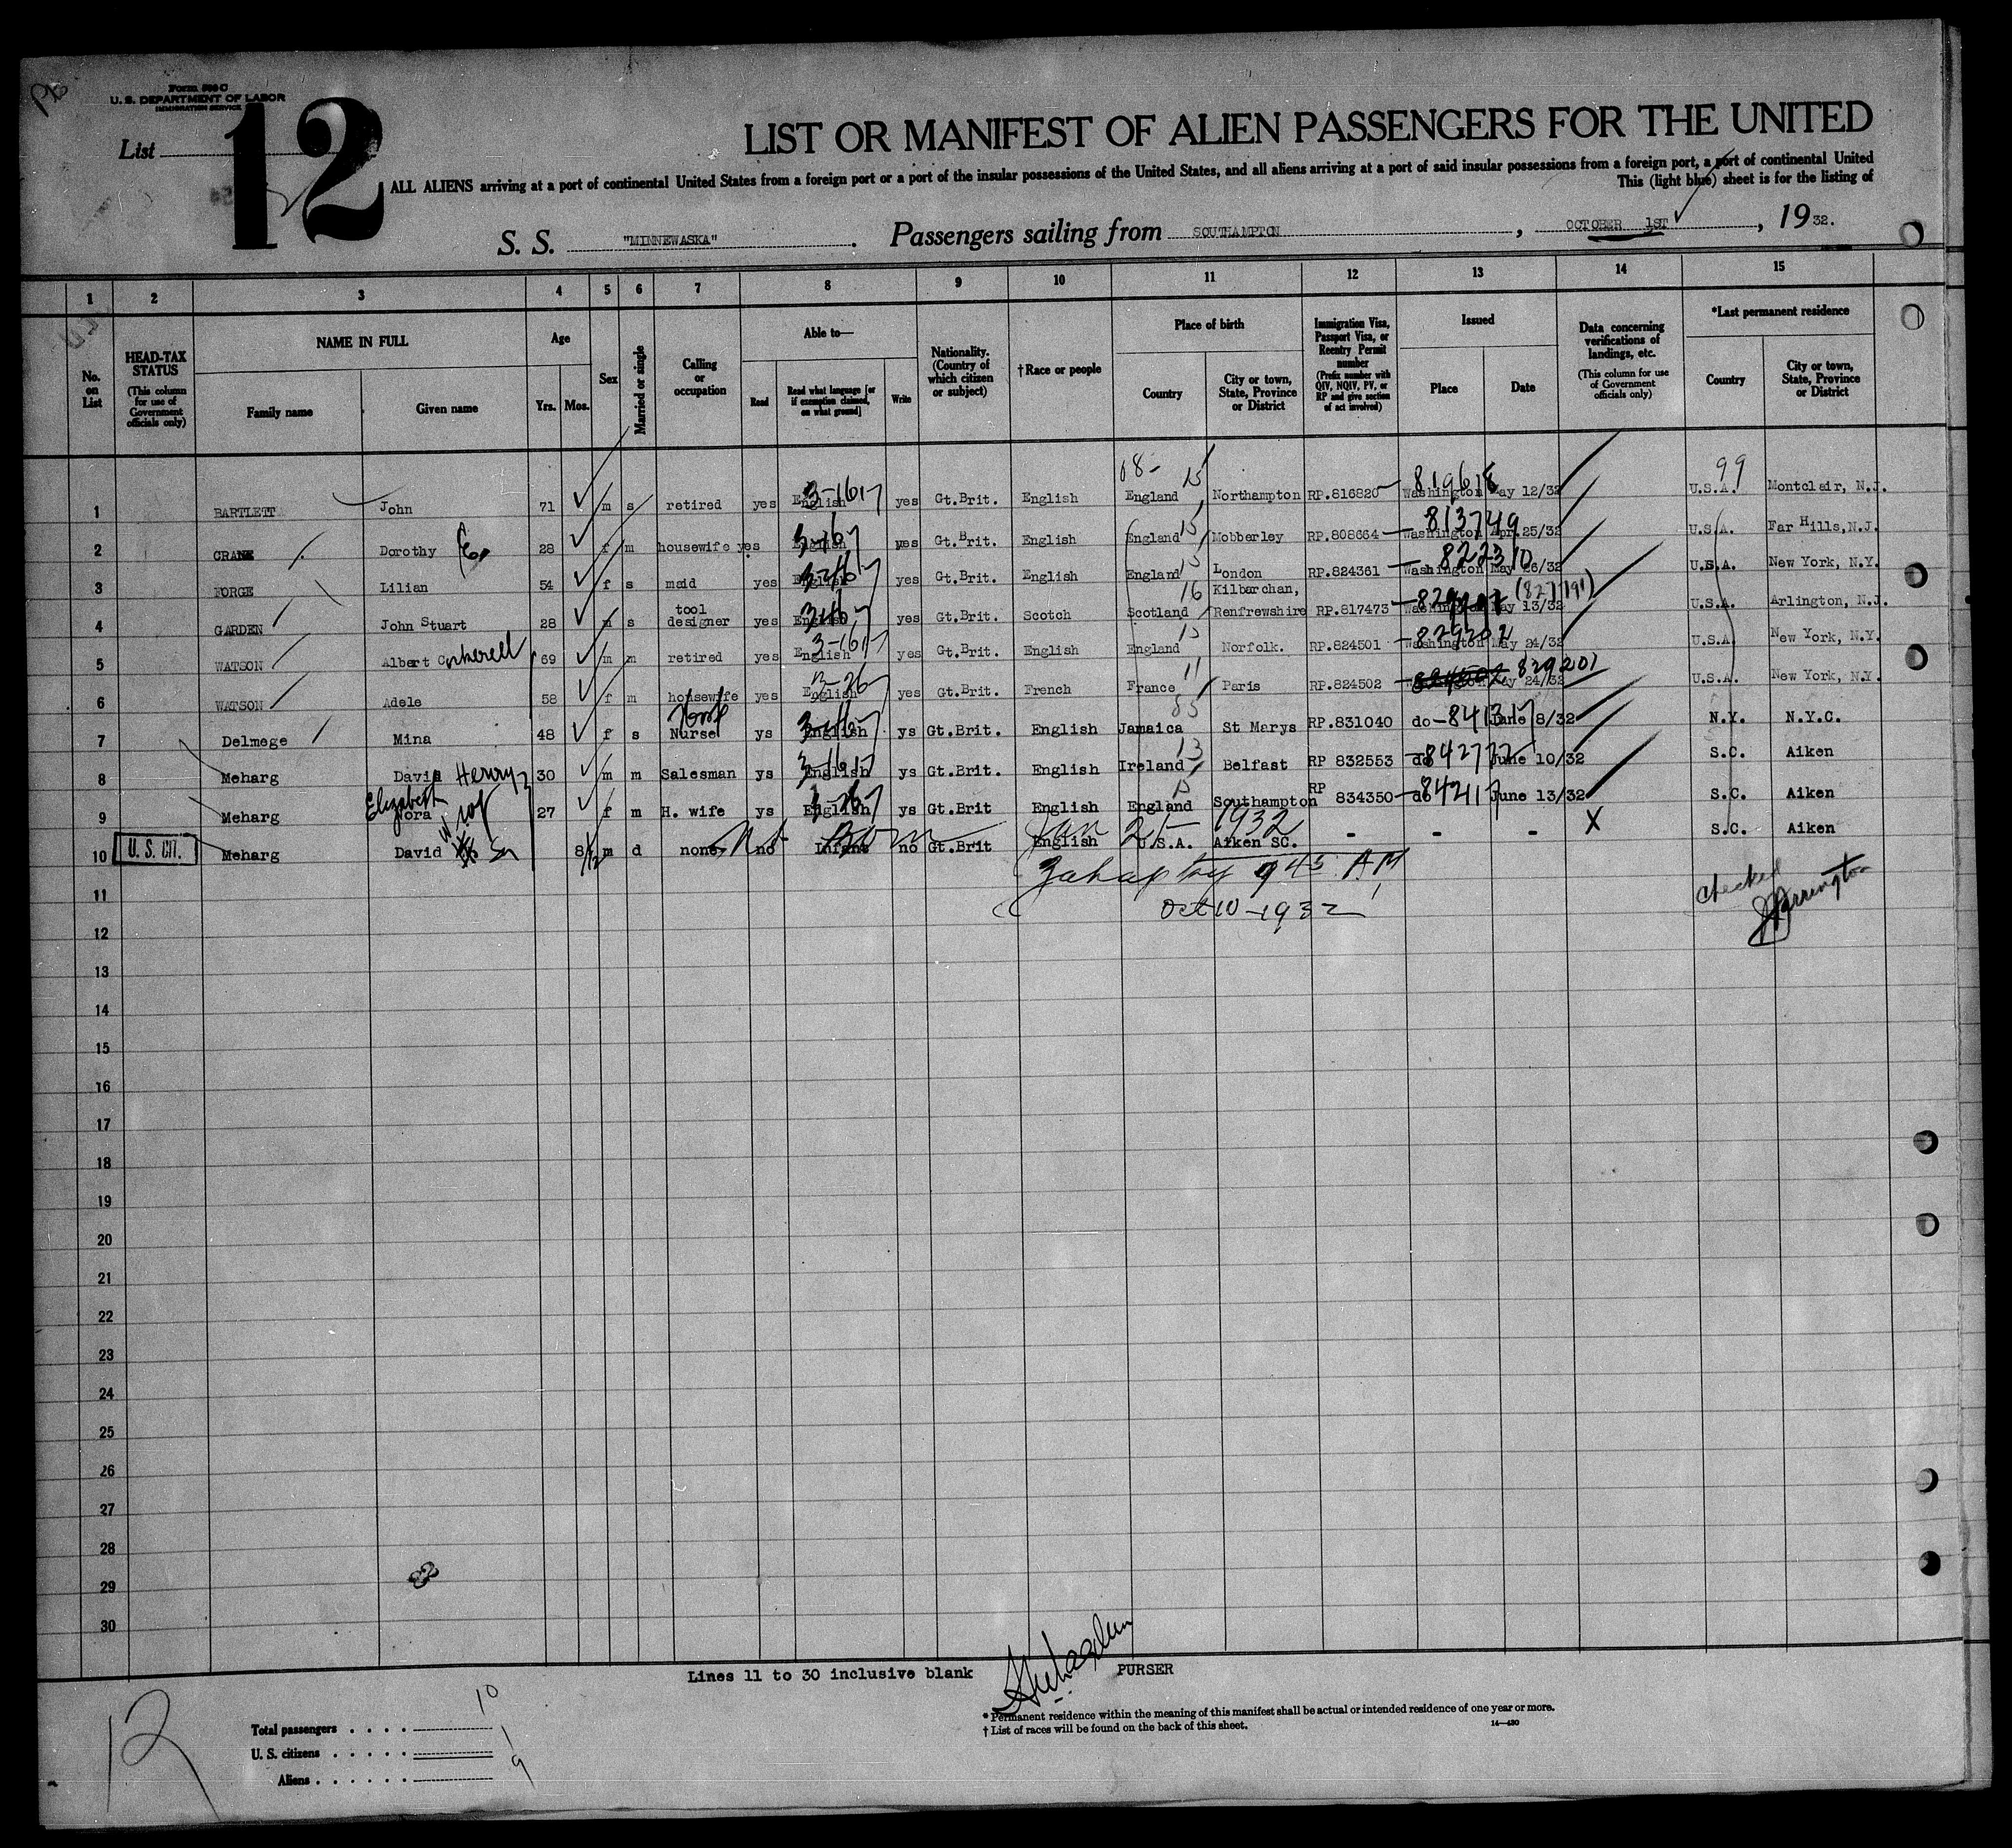 Form 500 C
U. S. DEPARTMENT OF LABOR
IMMIGRATION SERVICE
List 12
LIST OR MANIFEST OF ALIEN PASSENGERS FOR THE UNITED
ALL ALIENS arriving at a port of continental United States from a foreign port or a port of the insular possessions of the United States, and all aliens arriving at a port of said insular possessions from a foreign port, a port of continental United
This (light blue) sheet is for the listing of
S. S. "MINNEWASKA". Passengers sailing from SOUTHAMPTON, OCTOBER 1ST, 1932.
1 2 3 4 5 6 7 8 9 10 11 12 13 14 15
No. on List
HEAD-TAX STATUS (This column for use of Government officials only)
NAME IN FULL Family name Given name
Age Yrs. Mos.
Sex
Married or single
Calling or occupation
Able to— Read Read what language [or if exemption claimed, on what ground] Write
Nationality. (Country of which citizen or subject)
†Race or people
Place of birth Country City or town, State, Province or District
Immigration Visa, Passport Visa, or Reentry Permit number (Prefix number with QIV, NQIV, PV, or RP and give section of act involved)
Issued Place Date
Data concerning verifications of landings, etc. (This column for use of Government officials only)
*Last permanent residence Country City or town, State, Province or District
08- 15 99
1 BARTLETT John 71 m s retired yes English 3-1617 yes Gt.Brit. English England Northampton RP.816820 - 819618 Washington May 12/32 U.S.A. Montclair, N.J.
2 CRANE Dorothy E. 28 f m housewife yes English yes Gt.Brit. English England 15 Mobberley RP.808664 - 813749 Washington Apr.25/32 U.S.A. Far Hills,N.J.
3 FORGE Lilian 54 f s maid yes English yes Gt.Brit. English England 15 London RP.824361 - 822310 Washington May 26/32 U.S.A. New York, N.Y.
4 GARDEN John Stuart 28 m s tool designer yes English yes Gt.Brit. Scotch Scotland 16 Kilbarchan, Renfrewshire RP.817473 (827191) Washington May 13/32 U.S.A. Arlington, N.J.
5 WATSON Albert Cokerell 69 m m retired yes English 3-1617 yes Gt.Brit. English England 15 Norfolk. RP.824501 - 829202 Washington May 24/32 U.S.A. New York, N.Y.
6 WATSON Adele 58 f m housewife yes English yes Gt.Brit. French France 11 Paris RP.824502 829201 May 24/32 U.S.A. New York, N.Y.
7 Delmege Mina 48 f s Nurse ys English ys Gt.Brit. English Jamaica 85 St Marys RP.831040 do - 841317 June 8/32 N.Y. N.Y.C.
8 Meharg David Henry 30 m m Salesman ys English 3-1617 ys Gt.Brit. English Ireland 13 Belfast RP 832553 - do 842777 June 10/32 S.C. Aiken
9 Meharg Elizabeth Nora 27 f m H. wife ys English ys Gt.Brit English England 15 Southampton RP 834350 - do 842117 June 13/32 S.C. Aiken
10 U. S. CIT. Meharg David 8/12 m d none no Infant no Gt.Brit English U.S.A. Aiken SC. - - - X S.C. Aiken
Born Jan 25 1932
9 45 AM
Oct 10 - 1932
checked
11
12
13
14
15
16
17
18
19
20
21
22
23
24
25
26
27
28
29
30
Lines 11 to 30 inclusive blank PURSER
* Permanent residence within the meaning of this manifest shall be actual or intended residence of one year or more.
† List of races will be found on the back of this sheet. 14—430
12
Total passengers . . . . 10
U. S. citizens . . . . . 1
Aliens . . . . . . 9